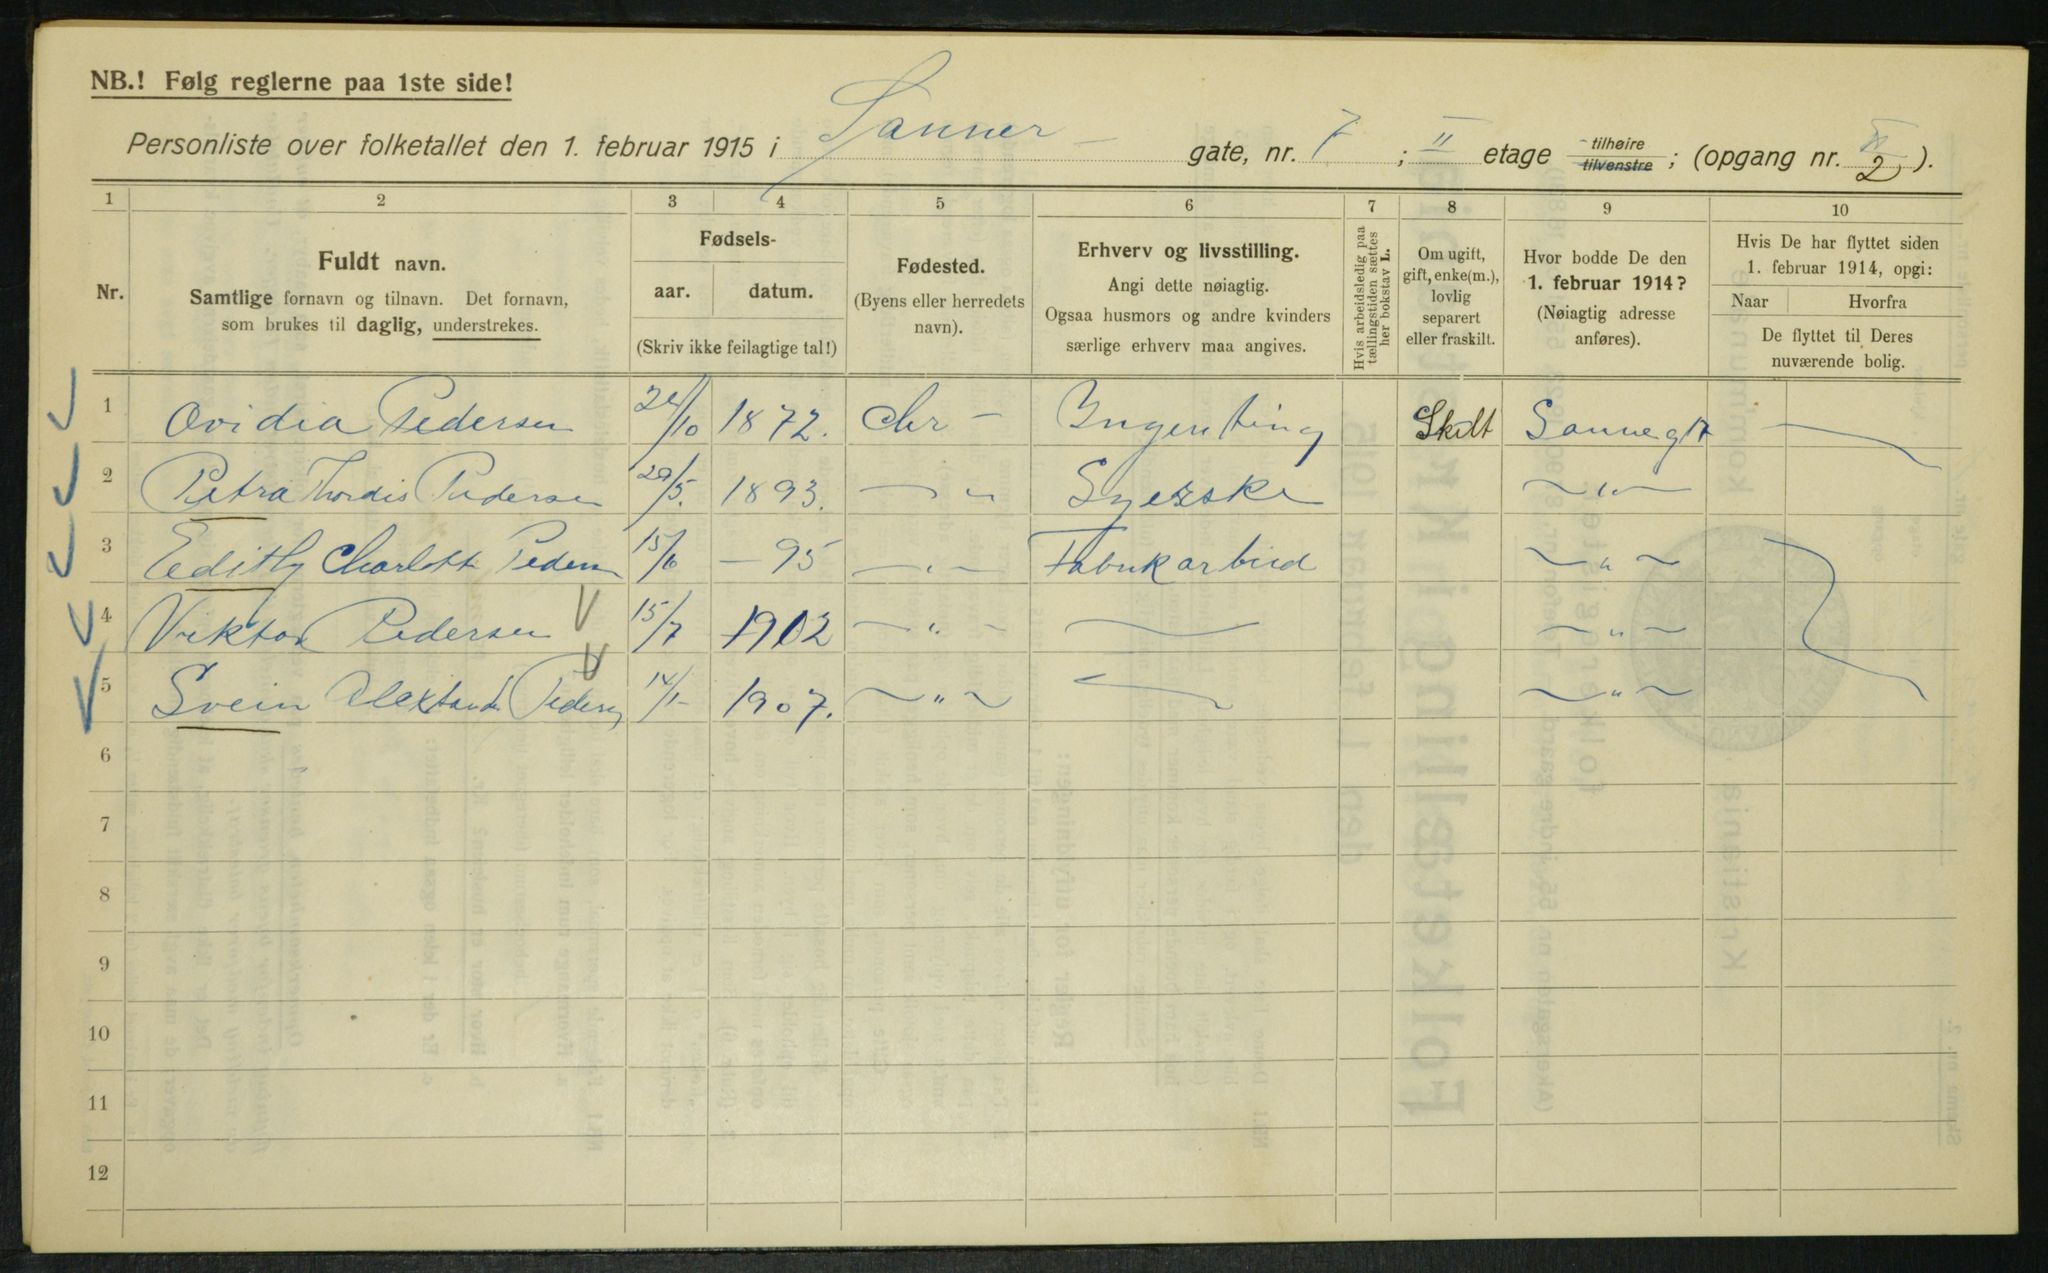 NB.! Følg reglerne paa 1ste side!
Personliste over folketallet den 1. februar 1915 i Sanner- gate, nr. 7 ; II etage tilhøire tilvenstre ; (opgang nr. 2 ).
1 2 3 4 5 6 7 8 9 10
Nr.
Fuldt navn.
Samtlige fornavn og tilnavn. Det fornavn,
som brukes til daglig, understrekes.
Fødsels-
aar. datum.
(Skriv ikke feilagtige tal!)
Fødested.
(Byens eller herredets
navn).
Erhverv og livsstilling.
Angi dette nøiagtig.
Ogsaa husmors og andre kvinders
særlige erhverv maa angives.
Hvis arbeidsledig paa
tællingstiden sættes
her bokstav L.
Om ugift,
gift, enke(m.),
lovlig
separert
eller fraskilt.
Hvor bodde De den
1. februar 1914?
(Nøiagtig adresse
anføres).
Hvis De har flyttet siden
1. februar 1914, opgi:
Naar Hvorfra
De flyttet til Deres
nuværende bolig.
1 Ovidia Pedersen 24/10 1872. Chr - Ingenting Skilt Sannegt 7 —
2 Petra Thordis Pedersen 29/5. 1893. — " Syerske — " —
3 Edith Charlott Pedersen 15/6 — 95 — " — Fabrikarbeid — " —
4 Viktor Pedersen 15/7 1902 — " — — — " —
5 Svein Alexsander Pedersen 14/1- 1907. — " — — — " —
6
7
8
9
10
11
12